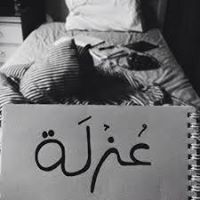 عُزلَة